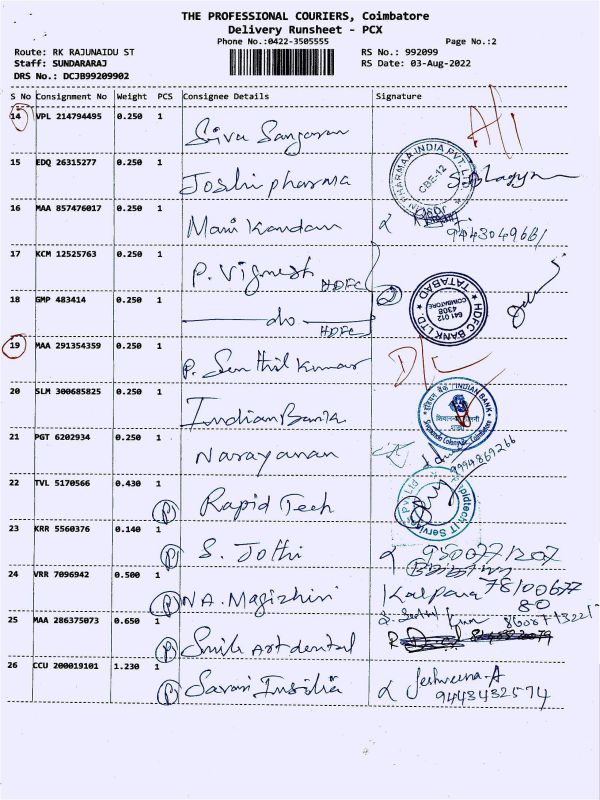 THE PROFESSIONAL COURIERS, Coimbatore
Delivery Runsheet - PCX
Phone No.:0422-3505555 Page No.:2
Route: RK RAJUNAIDU ST RS No.: 992099
Staff: SUNDARARAJ RS Date: 03-Aug-2022
DRS No.: DCJB99209902
S No Consignment No Weight PCS Consignee Details Signature
14 VPL 214794495 0.250 1 Siva Sangaran
15 EDQ 26315277 0.250 1 Joshi pharma
16 MAA 857476017 0.250 1 Mani Kandan 9443049661
17 KCM 12525763 0.250 1 P. Vignesh HDFC
18 GMP 483414 0.250 1 do HDFC
HDFC BANK LTD. TATABAD 641 012 4308 COIMBATORE
19 MAA 291354359 0.250 1 P. Senthil Kumar D/L
20 SLM 300685825 0.250 1 Indian Bank
INDIAN BANK
21 PGT 6202934 0.250 1 Narayanan
22 TVL 5170566 0.430 1 P Rapid Tech
23 KRR 5560376 0.140 1 P S. Jothi
24 VRR 7096942 0.500 1 P N A. Magizhini Kalpana 7810067780
25 MAA 286375073 0.650 1 P Smile Art dental
26 CCU 200019101 1.230 1 P 9443432574